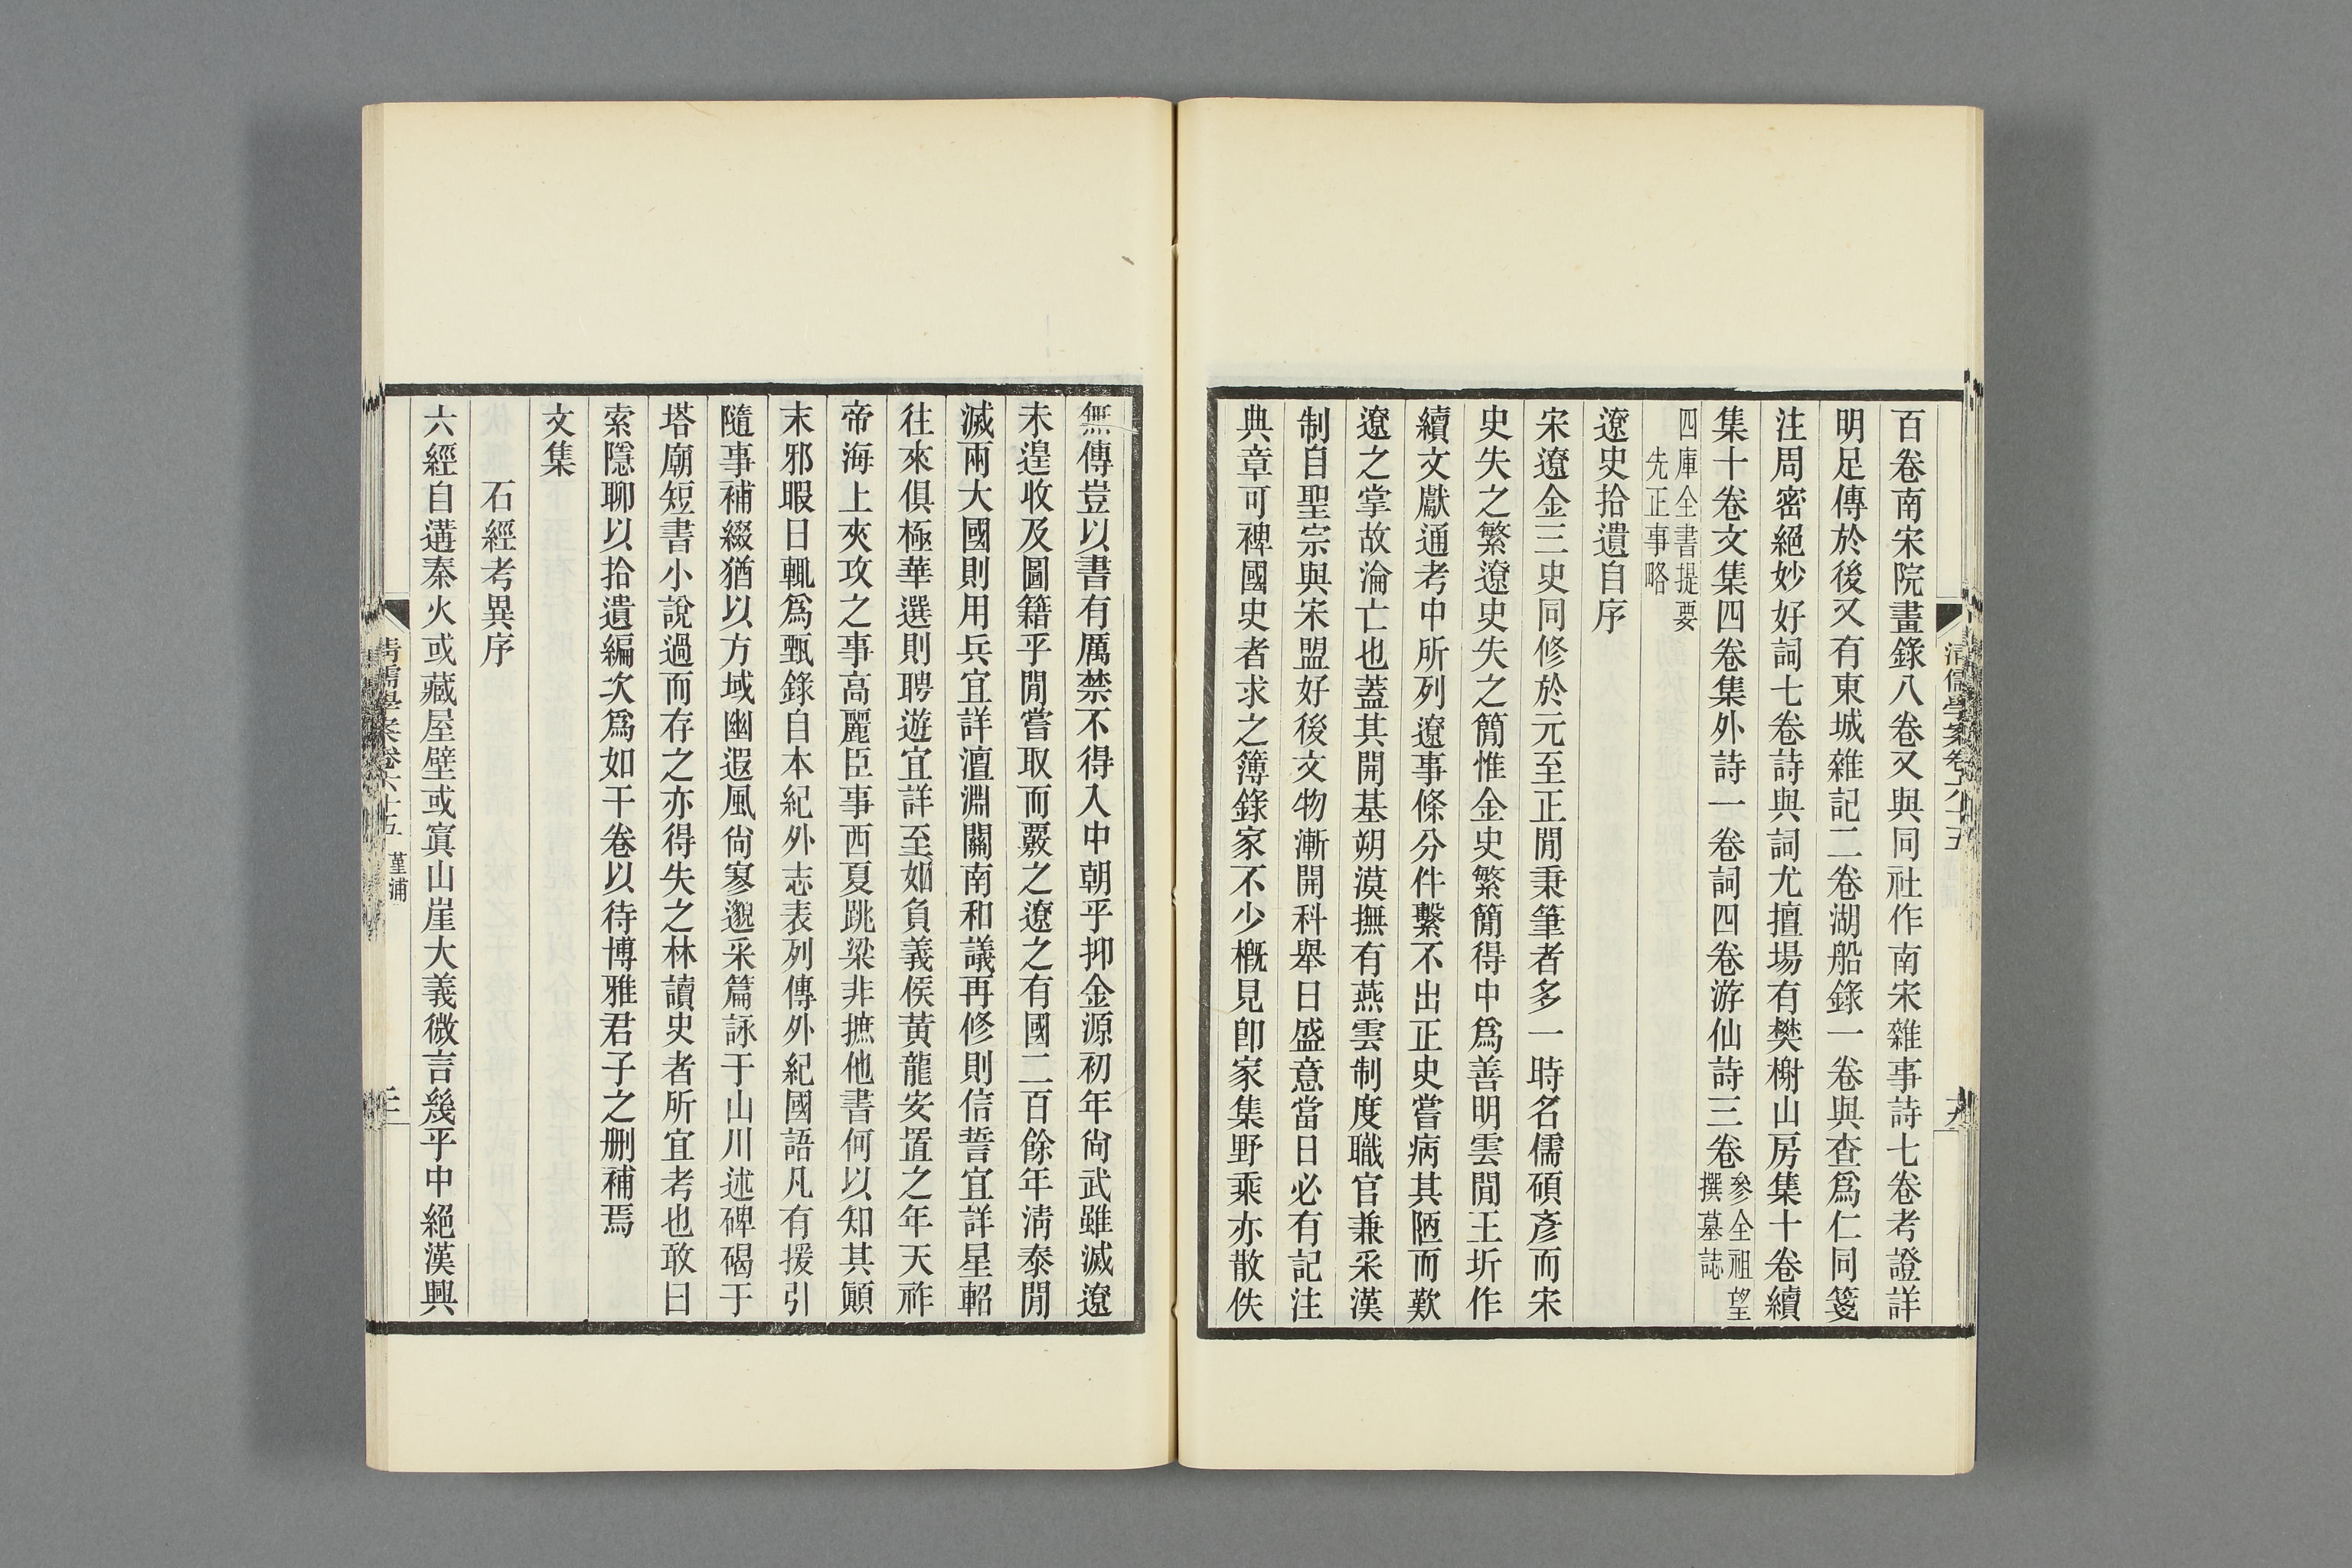 百卷南宋院畫錄八卷又與同社作南宋雜事詩七卷考證詳
明足傳於後又有東城雜記二卷湖船錄一卷與查爲仁同箋
注周密絕妙好詞七卷詩與詞尤擅場有樊榭山房集十卷續
集十卷文集四卷集外詩一卷詞四卷游仙詩三卷參全祖望
撰墓誌
四庫全書提要
先正事略
遼史拾遺自序
宋遼金三史同修於元至正閒秉筆者多一時名儒碩彥而宋
史失之繁遼史失之簡惟金史繁簡得中爲善明雲閒王圻作
續文獻通考中所列遼事條分件繫不出正史嘗病其陋而歎
遼之掌故淪亡也蓋其開基朔漠撫有燕雲制度職官兼采漢
制自聖宗與宋盟好後文物漸開科舉日盛意當日必有記注
典章可裨國史者求之簿錄家不少槪見卽家集野乘亦散佚
清儒學案卷六十五
十九
無傳豈以書有厲禁不得入中朝乎抑金源初年尙武雖滅遼
未遑收及圖籍乎閒嘗取而覈之遼之有國二百餘年淸泰閒
滅兩大國則用兵宜詳澶淵關南和議再修則信誓宜詳星軺
往來俱極華選則聘遊宜詳至如負義侯黃龍安置之年天祚
帝海上夾攻之事高麗臣事西夏跳梁非摭他書何以知其顚
末邪暇日輒爲甄錄自本紀外志表列傳外紀國語凡有援引
隨事補綴猶以方域幽遐風尙寥邈采篇詠于山川述碑碣于
塔廟短書小說過而存之亦得失之林讀史者所宜考也敢曰
索隱聊以拾遺編次爲如干卷以待博雅君子之删補焉
文集
石經考異序
六經自遘秦火或藏屋壁或寘山崖大義微言幾乎中絕漢興
清儒學案卷六十五 堇浦